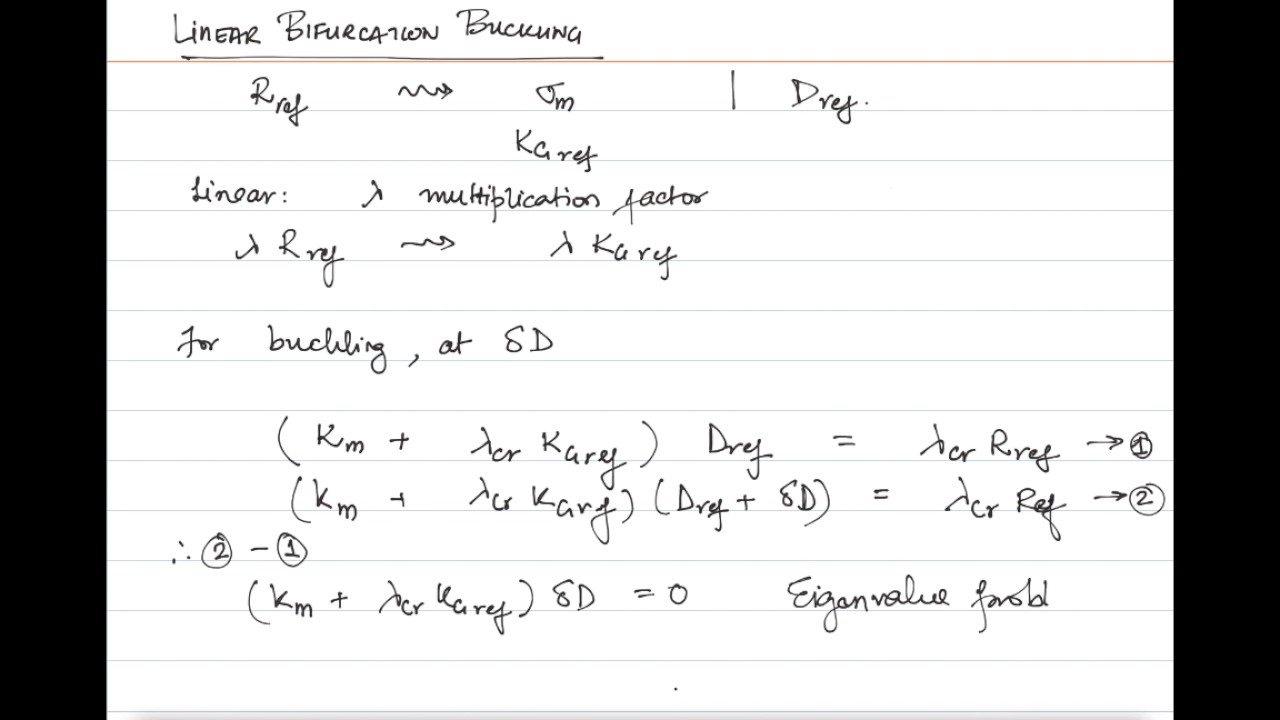 LINEAR BIFURCATION BUCKLING
R_ref ⇝ σ_m | D_ref.
K_G ref
Linear: λ multiplication factor
λ R_ref ⇝ λ K_G ref
For buckling, at δD
(K_m + λ_cr K_G ref) D_ref = λ_cr R_ref → ①
(K_m + λ_cr K_G ref) (D_ref + δD) = λ_cr R_ef → ②
∴ ② - ①
(K_m + λ_cr K_G ref) δD = 0 Eigenvalue